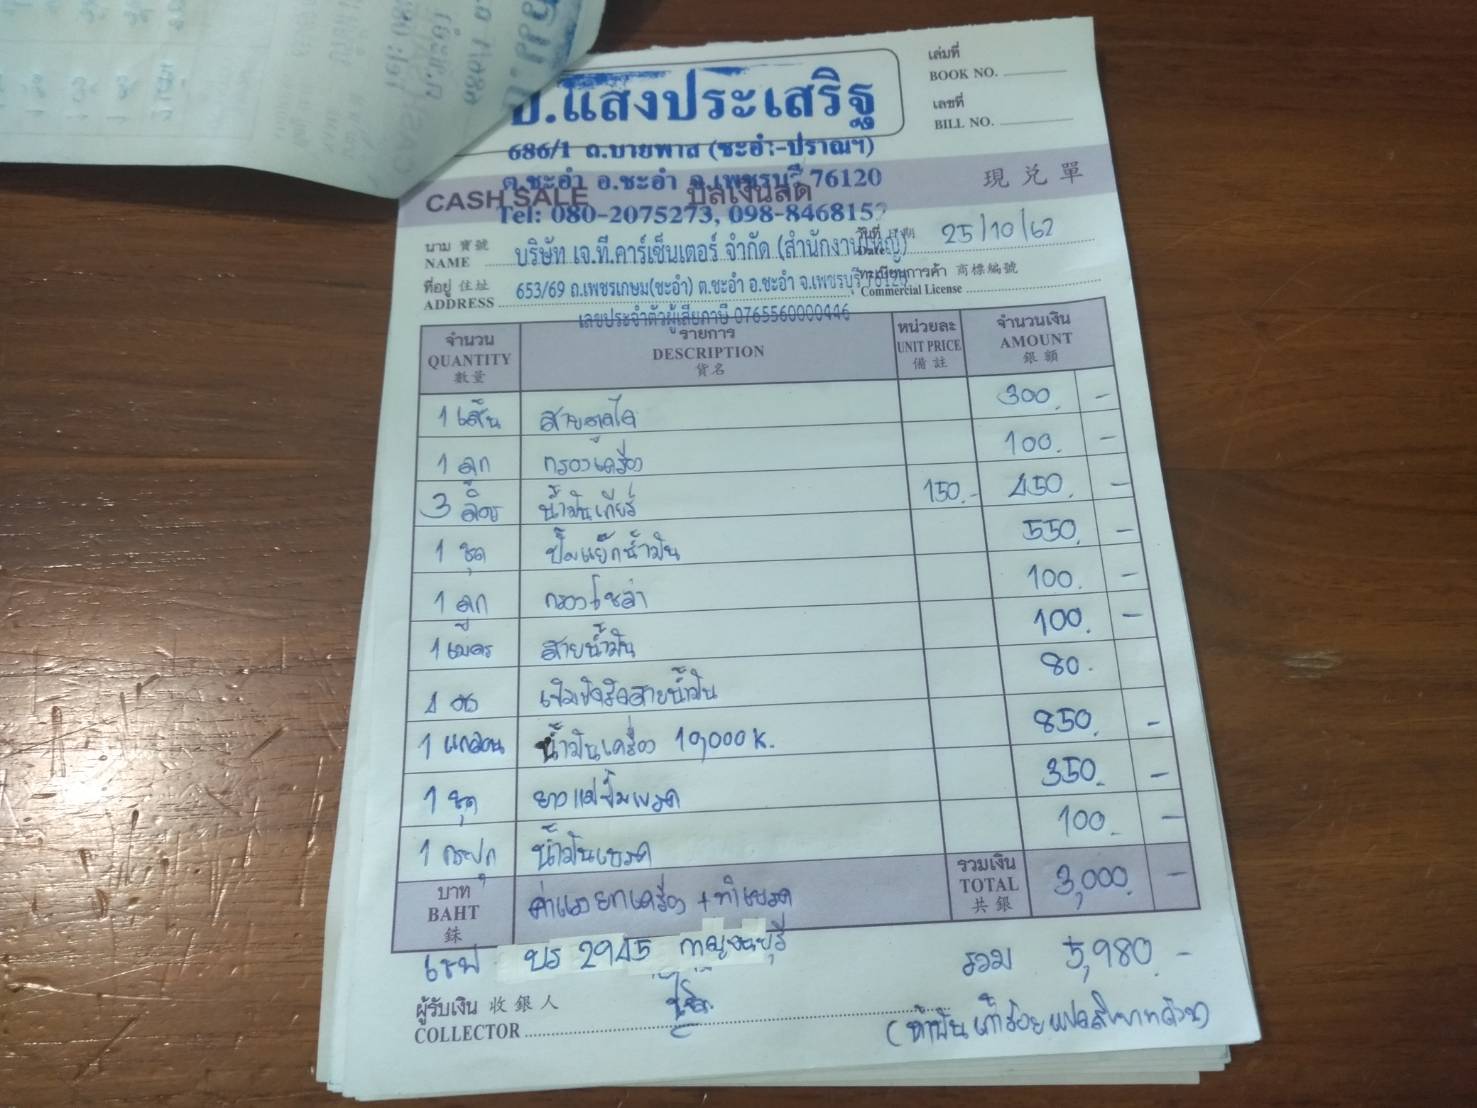 เล่มที่
BOOK NO.
เลขที่
BILL NO.
ป.แสงประเสริฐ
686/1 ถ.บายพาส (ชะอำ-ปราณฯ)
ต.ชะอำ อ.ชะอำ จ.เพชรบุรี 76120
CASH SALE บิลเงินสด 現兌單
Tel: 080-2075273, 098-8468152
นาม 寶號 วันที่ 日期
NAME บริษัท เจ.ที.คาร์เซ็นเตอร์ จำกัด (สำนักงานใหญ่) Date 25/10/62
ที่อยู่ 住址 ทะเบียนการค้า 商標編號
ADDRESS 653/69 ถ.เพชรเกษม(ชะอำ) ต.ชะอำ อ.ชะอำ จ.เพชรบุรี 76120 Commercial License
เลขประจำตัวผู้เสียภาษี 0765560000446
จำนวน รายการ หน่วยละ จำนวนเงิน
QUANTITY DESCRIPTION UNIT PRICE AMOUNT
數量 貨名 備註 銀額
1 เส้น สายคูโด 300.-
1 ลูก กรองเครื่อง 100.-
3 ลิตร น้ำมันเกียร์ 150.- 450.-
1 ชุด ปั๊มแย็กน้ำมัน 550.-
1 ลูก กรองโซล่า 100.-
1 เมตร สายน้ำมัน 100.-
4 ตัว เข็มขัดรัดสายน้ำมัน 80.-
1 แกลลอน น้ำมันเครื่อง 10,000 K. 850.-
1 ชุด ยางแม่ปั๊มเบรค 350.-
1 กระปุก น้ำมันเบรค 100.-
บาท ค่าแรงยกเครื่อง + ทำเบรค รวมเงิน 3,000.-
BAHT TOTAL
銖 共銀
เชฟ บร 2945 กาญจนบุรี รวม 5,980.-
ผู้รับเงิน 收銀人
COLLECTOR
(ห้าพันเก้าร้อยแปดสิบบาทถ้วน)